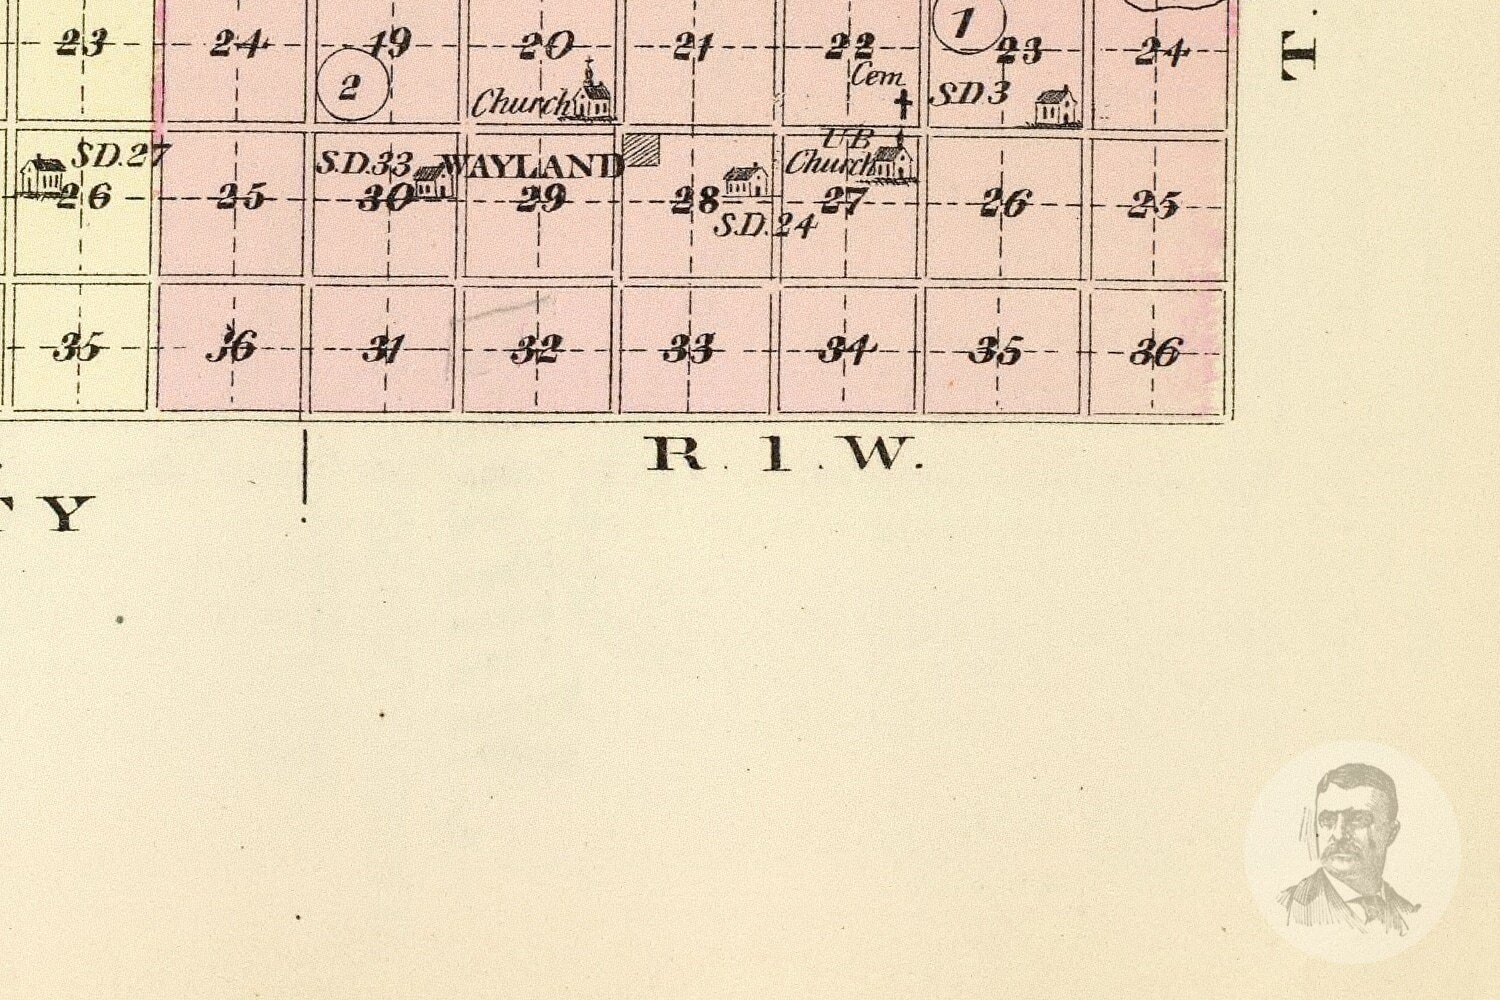 23 24 19 20 21 22 1 23 24
T.
2 Cem
Church S.D 3
S.D.27 S.D.33 WAYLAND UB
Church
26 25 30 29 28 27 26 25
S.D.24
35 36 31 32 33 34 35 36
R. 1. W.
TY